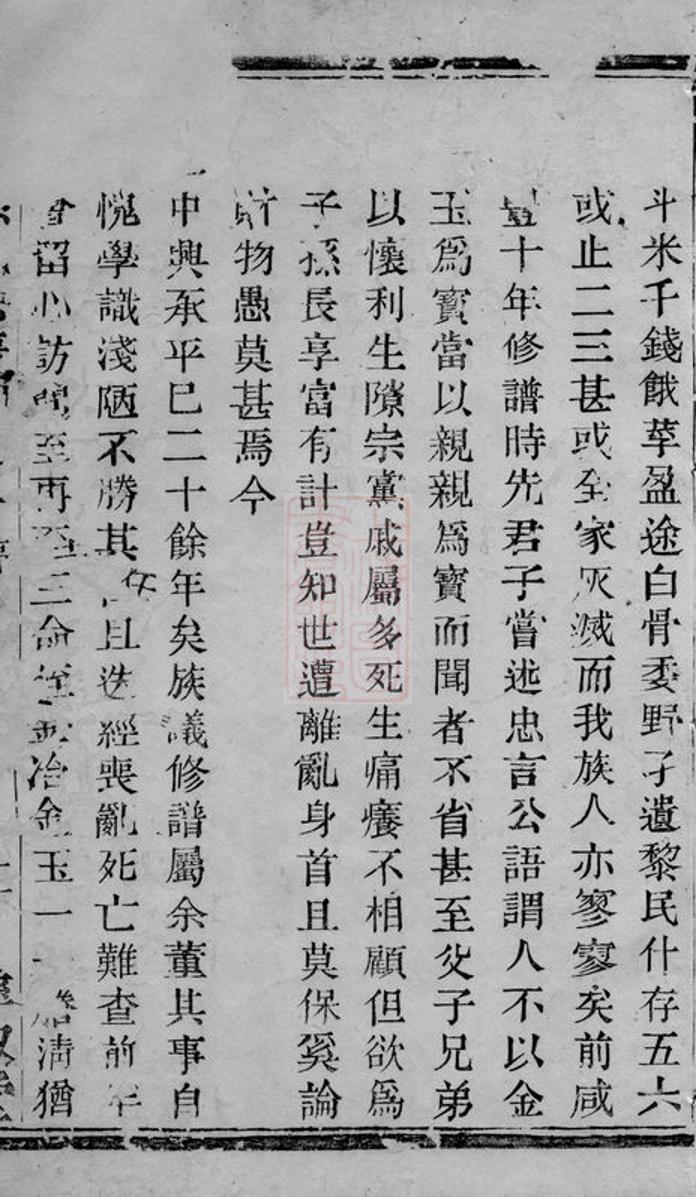 斗米千錢餓莩盈途白骨委野孑遺黎民什存五六
或止二三甚或全家灰滅而我族人亦寥寥矣前咸
豐十年修譜時先君子嘗述忠言公語謂人不以金
玉爲寳當以親親爲寳而聞者不省甚至父子兄弟
以懷利生隙宗黨戚屬多死生痛癢不相顧但欲爲
子孫長享富有計豈知世遭離亂身首且莫保奚論
財物愚莫甚焉今
中興承平巳二十餘年矣族議修譜屬余董其事自
愧學識淺陋不勝其任且迭經喪亂死亡難查前年
曾留心訪問至再至三命 冶金玉一一 清猶